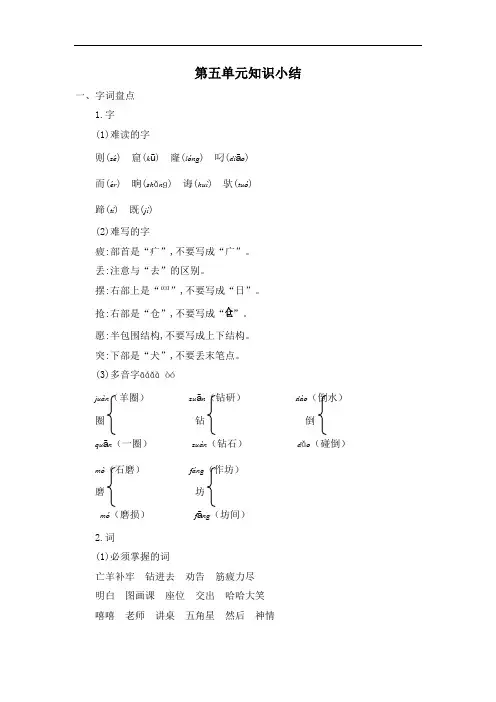 第五单元知识小结
一、字词盘点
1.字
(1)难读的字
则(zé) 窟(kū) 窿(lóng) 叼(diāo)
而(ér) 晌(shǎng) 诲(huì) 驮(tuó)
蹄(tí) 既(jì)
(2)难写的字
疲:部首是“疒”,不要写成“广”。
丢:注意与“去”的区别。
摆:右部上是“罒”,不要写成“日”。
抢:右部是“仓”,不要写成“仑”。
愿:半包围结构,不要写成上下结构。
突:下部是“犬”,不要丢末笔点。
(3)多音字āáǎà òó
juàn(羊圈) zuān(钻研) dào(倒水)
圈 钻 倒
quān(一圈) zuàn(钻石) dǎo(碰倒)
mò(石磨) fáng(作坊)
磨 坊
mó(磨损) fāng(坊间)
2.词
(1)必须掌握的词
亡羊补牢 钻进去 劝告 筋疲力尽
明白 图画课 座位 交出 哈哈大笑
嘻嘻 老师 讲桌 五角星 然后 神情